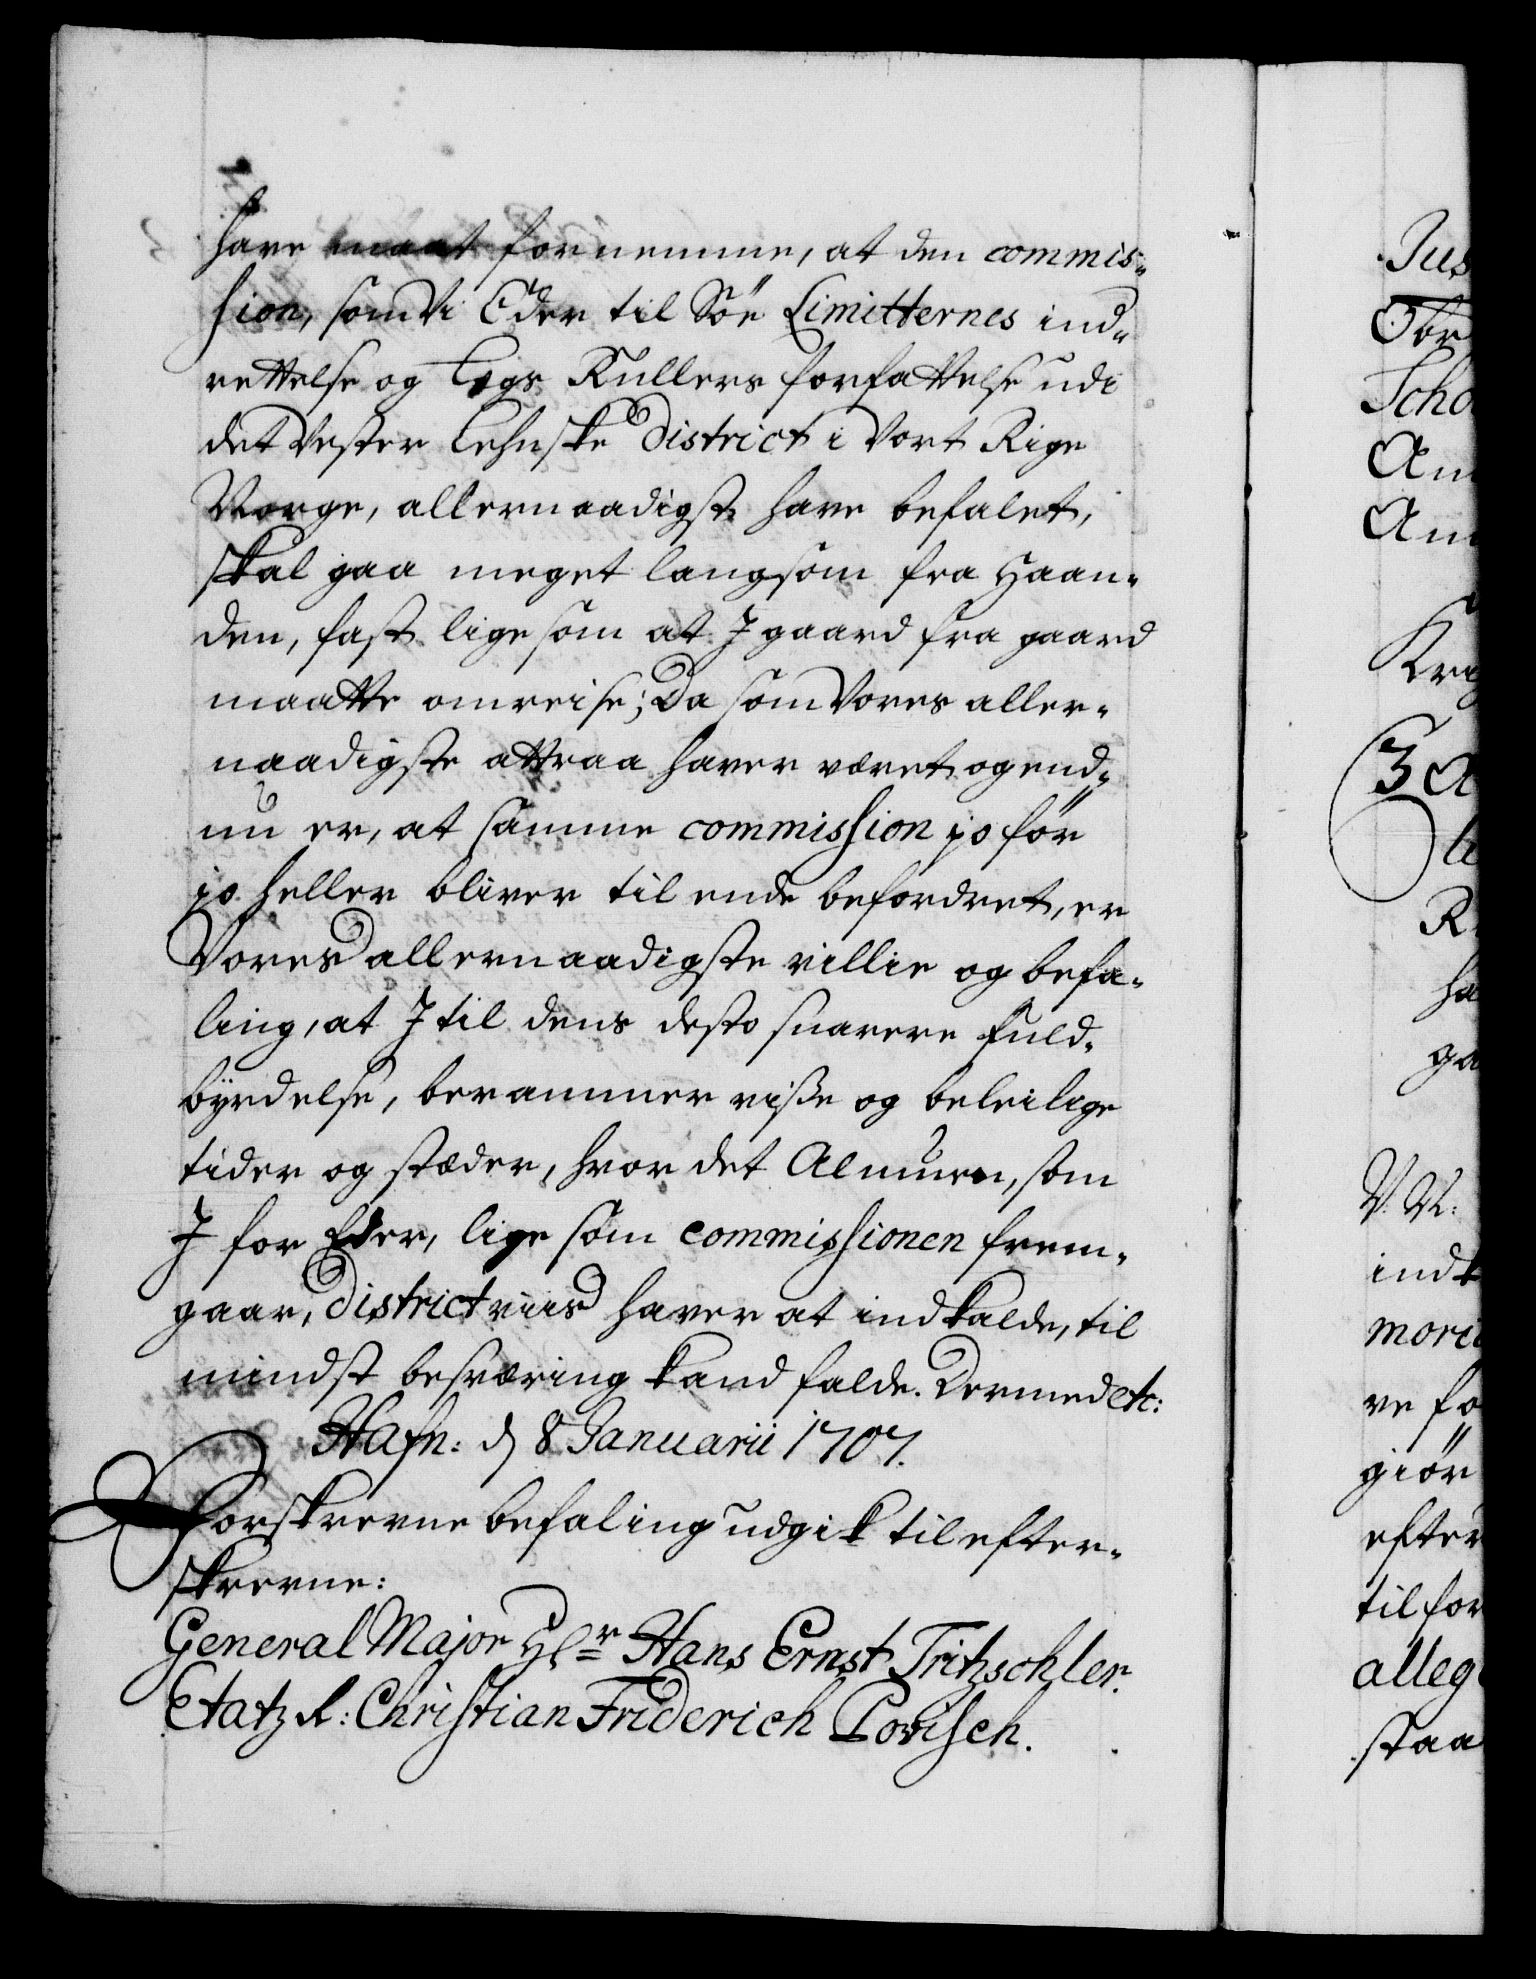 have maat fornemme, at den commis-
sion, som Vi Eder til Söe Limitternes ind-
rettelse og Legs Rullers forfattelse udi
det Vester Lehnske District i Vort Rige
Norge, allernaadigst have befalet,
skal gaa meget langsom fra Haan-
den, fast lige som at I gaard fra gaard
maatte omreise; Da som Vores aller-
naadigste attraa haver været og end-
nu er, at samme commission jo för
jo heller bliver til ende befordret, er
Vores allernaadigste villie og befa-
ling, at I til dens desto snarere fuld-
byrdelse, berammer visse og beleilige
tider og stæder, hvor det Almuen, som
I for Eder, lige som commissionen frem-
gaar, District viis haver at indkalde, til
mindst besværing kand falde. Dermed etc:
Hafn: d 8 Januarii 1707.
Forskrevne befaling udgik til efter-
skrevne:
General Major Hr Hans Ernst Tritzschler.
Etatz R: Christian Friderich Powisch.
Jus
Obr
Scho
Am
Am
Krig
3 A
le
R
ha
ga
V. N:
indk
mori
ve fo
giör
efter
til for
alleg
staa